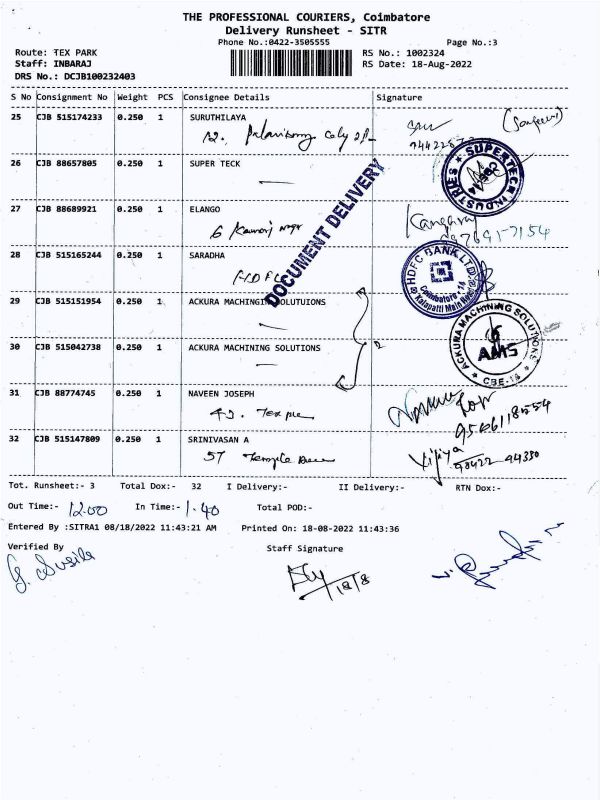 THE PROFESSIONAL COURIERS, Coimbatore
Delivery Runsheet - SITR
Phone No.:0422-3505555 Page No.:3
Route: TEX PARK RS No.: 1002324
Staff: INBARAJ RS Date: 18-Aug-2022
DRS No.: DCJB100232403
S No Consignment No Weight PCS Consignee Details Signature
25 CJB 515174233 0.250 1 SURUTHILAYA
12.
26 CJB 88657805 0.250 1 SUPER TECK
SUPERTECH INDUSTRIES
27 CJB 88689921 0.250 1 ELANGO
6
DOCUMENT DELIVERY
28 CJB 515165244 0.250 1 SARADHA
HDFC
HDFC BANK LTD
Coimbatore -14
Kalapatti Main Road
29 CJB 515151954 0.250 1 ACKURA MACHINGING SOLUTUIONS
30 CJB 515042738 0.250 1 ACKURA MACHINING SOLUTIONS
ACKURA MACHINING SOLUTIONS
AMS
CBE-14
31 CJB 88774745 0.250 1 NAVEEN JOSEPH
32 CJB 515147809 0.250 1 SRINIVASAN A
57
98422 44330
Tot. Runsheet:- 3 Total Dox:- 32 I Delivery:- II Delivery:- RTN Dox:-
Out Time:- 12.00 In Time:- 1.40 Total POD:-
Entered By :SITRA1 08/18/2022 11:43:21 AM Printed On: 18-08-2022 11:43:36
Verified By Staff Signature
G. Susila
18/8